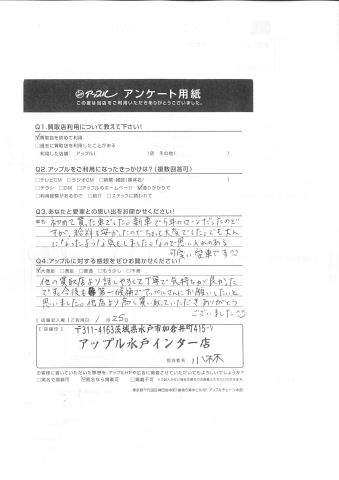 アップル アンケート用紙
この度は当店をご利用いただきありがとうございました。
Q1.買取店利用について教えて下さい!
買取店を初めて利用
□過去に買取店を利用したことがある
利用した店舗: アップル( )店 その他( )
Q2.アップルをご利用になったきっかけは?(複数回答可)
□テレビCM □ラジオCM □新聞・雑誌(媒体名/ )
□チラシ □DM □アップルのホームページ 通りがかりで
□利用経験があるので □紹介 □スタッフに誘われて
Q3.あなたと愛車との思い出をお聞かせください!
初めて買った車でした。新車で5年のローンだったので
すが、給料も安かったのでちょっと大変でしたがでも大人に
なったような気もしました。なので思い入れのある
可愛い愛車です
Q4.アップルに対する感想をぜひお聞かせください!
大満足 □満足 □普通 □もう少し □不満
他の買取店より話しやすくて丁寧で気持ちが良かった
です。今後も第一候補でアップルさんにお願いしたいと
思いました。他店より高く買い取っていただきありがとう
ございました
[店舗記入欄] [ご利用日: 1月25日]
〒311-4163茨城県水戸市加倉井町415-1
アップル水戸インター店
担当者名 小林
お客様に書いていただいた感想を、アップルHPや広告に掲載させていただいてもよろしいでしょうか?
□実名で掲載可 匿名なら掲載可 □掲載不可